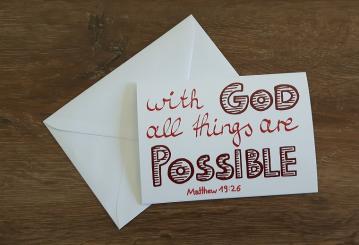 with GOD
all things are
POSSIBLE
Matthew 19:26